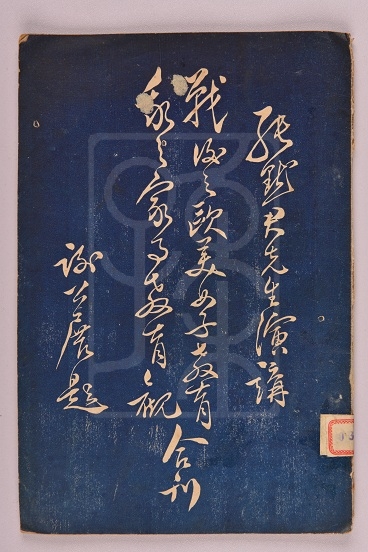 張默君先生演講
戰後之歐美女子教育
我之家事教育觀 合刊
謝公展題